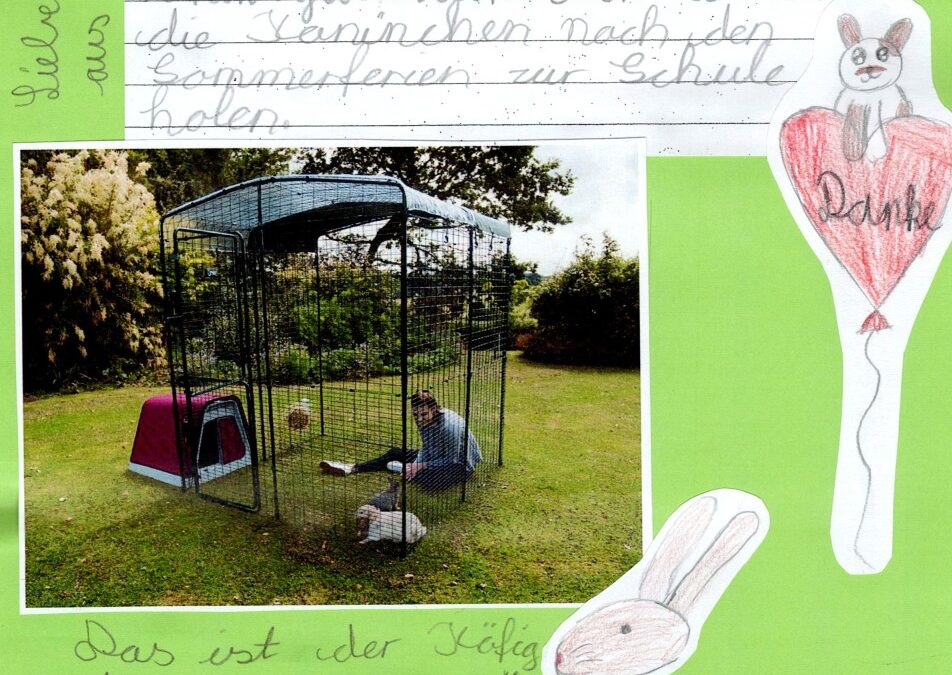 Liebe
aus
die Kaninchen nach den
Sommerferien zur Schule
holen.
Danke
Das ist der Käfig